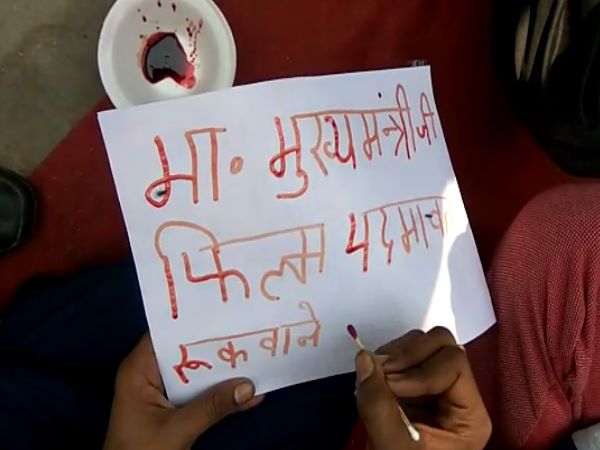 मा. मुख्यमंत्री जी
फिल्म पदमाव
रूकवाने